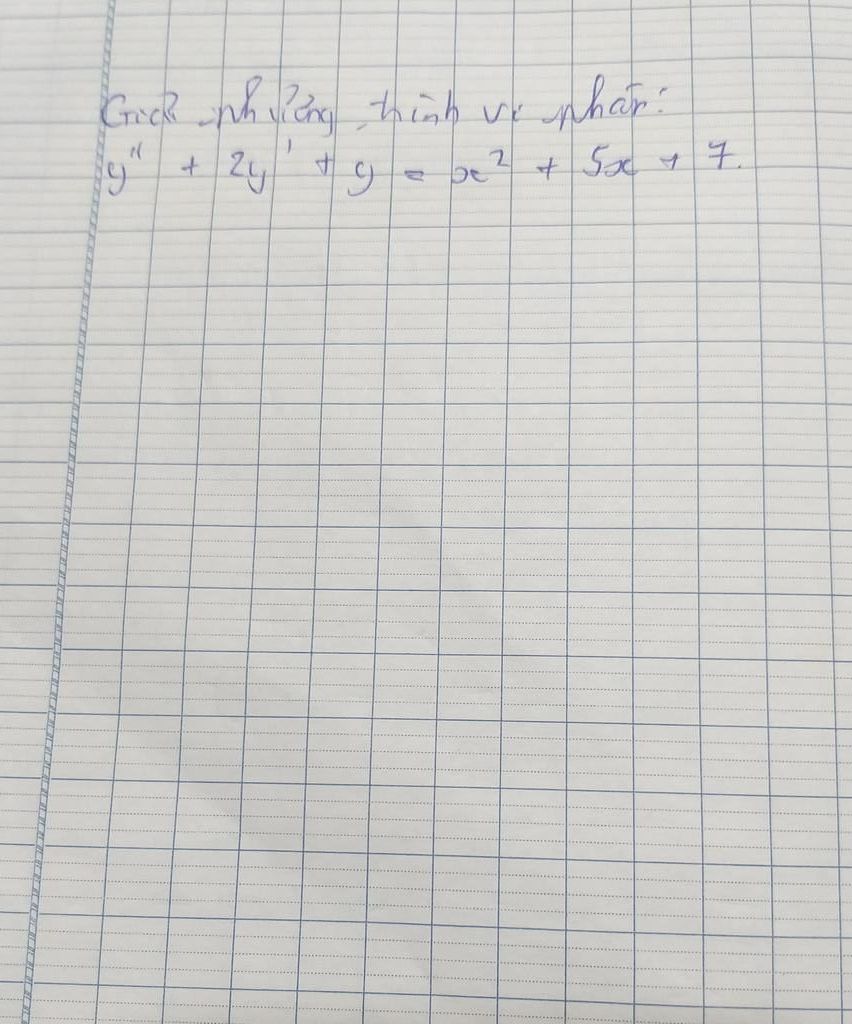 Giải phương trình vi phân:
y" + 2y' + y = x² + 5x + 7.